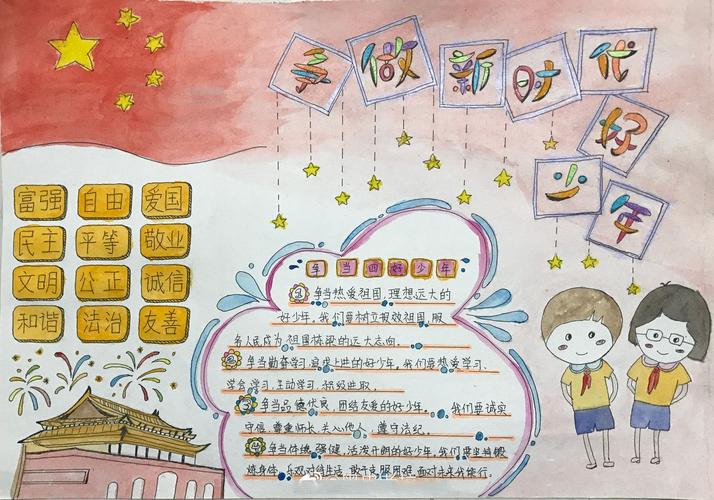 争做新时代好少年
富强 自由 爱国
民主 平等 敬业
文明 公正 诚信
和谐 法治 友善
争当四好少年
1 争当热爱祖国,理想远大的
好少年,我们要树立报效祖国,服
务人民成为祖国栋梁的远大志向。
2 争当勤奋学习,追求上进的好少年,我们要热爱学习、
学会学习、主动学习、积极进取。
3 争当品德优良,团结友爱的好少年。我们要诚实
守信,尊重师长,关心他人,遵守法纪。
4 争当体魄强健,活泼开朗的好少年,我们要坚持锻
炼身体,乐观对待生活,敢于克服困难,面对未来